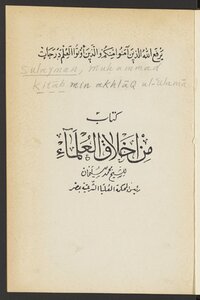 يرفع الله الذين آمنوا منكم والذين أوتوا العلم درجات
Sulayman, Muhammad
Kitāb min akhlāq al-‘ulamā
كتاب
من أخلاق العلماء
للشيخ محمد سليمان
رئيس المحكمة العليا الشرعية بمصر